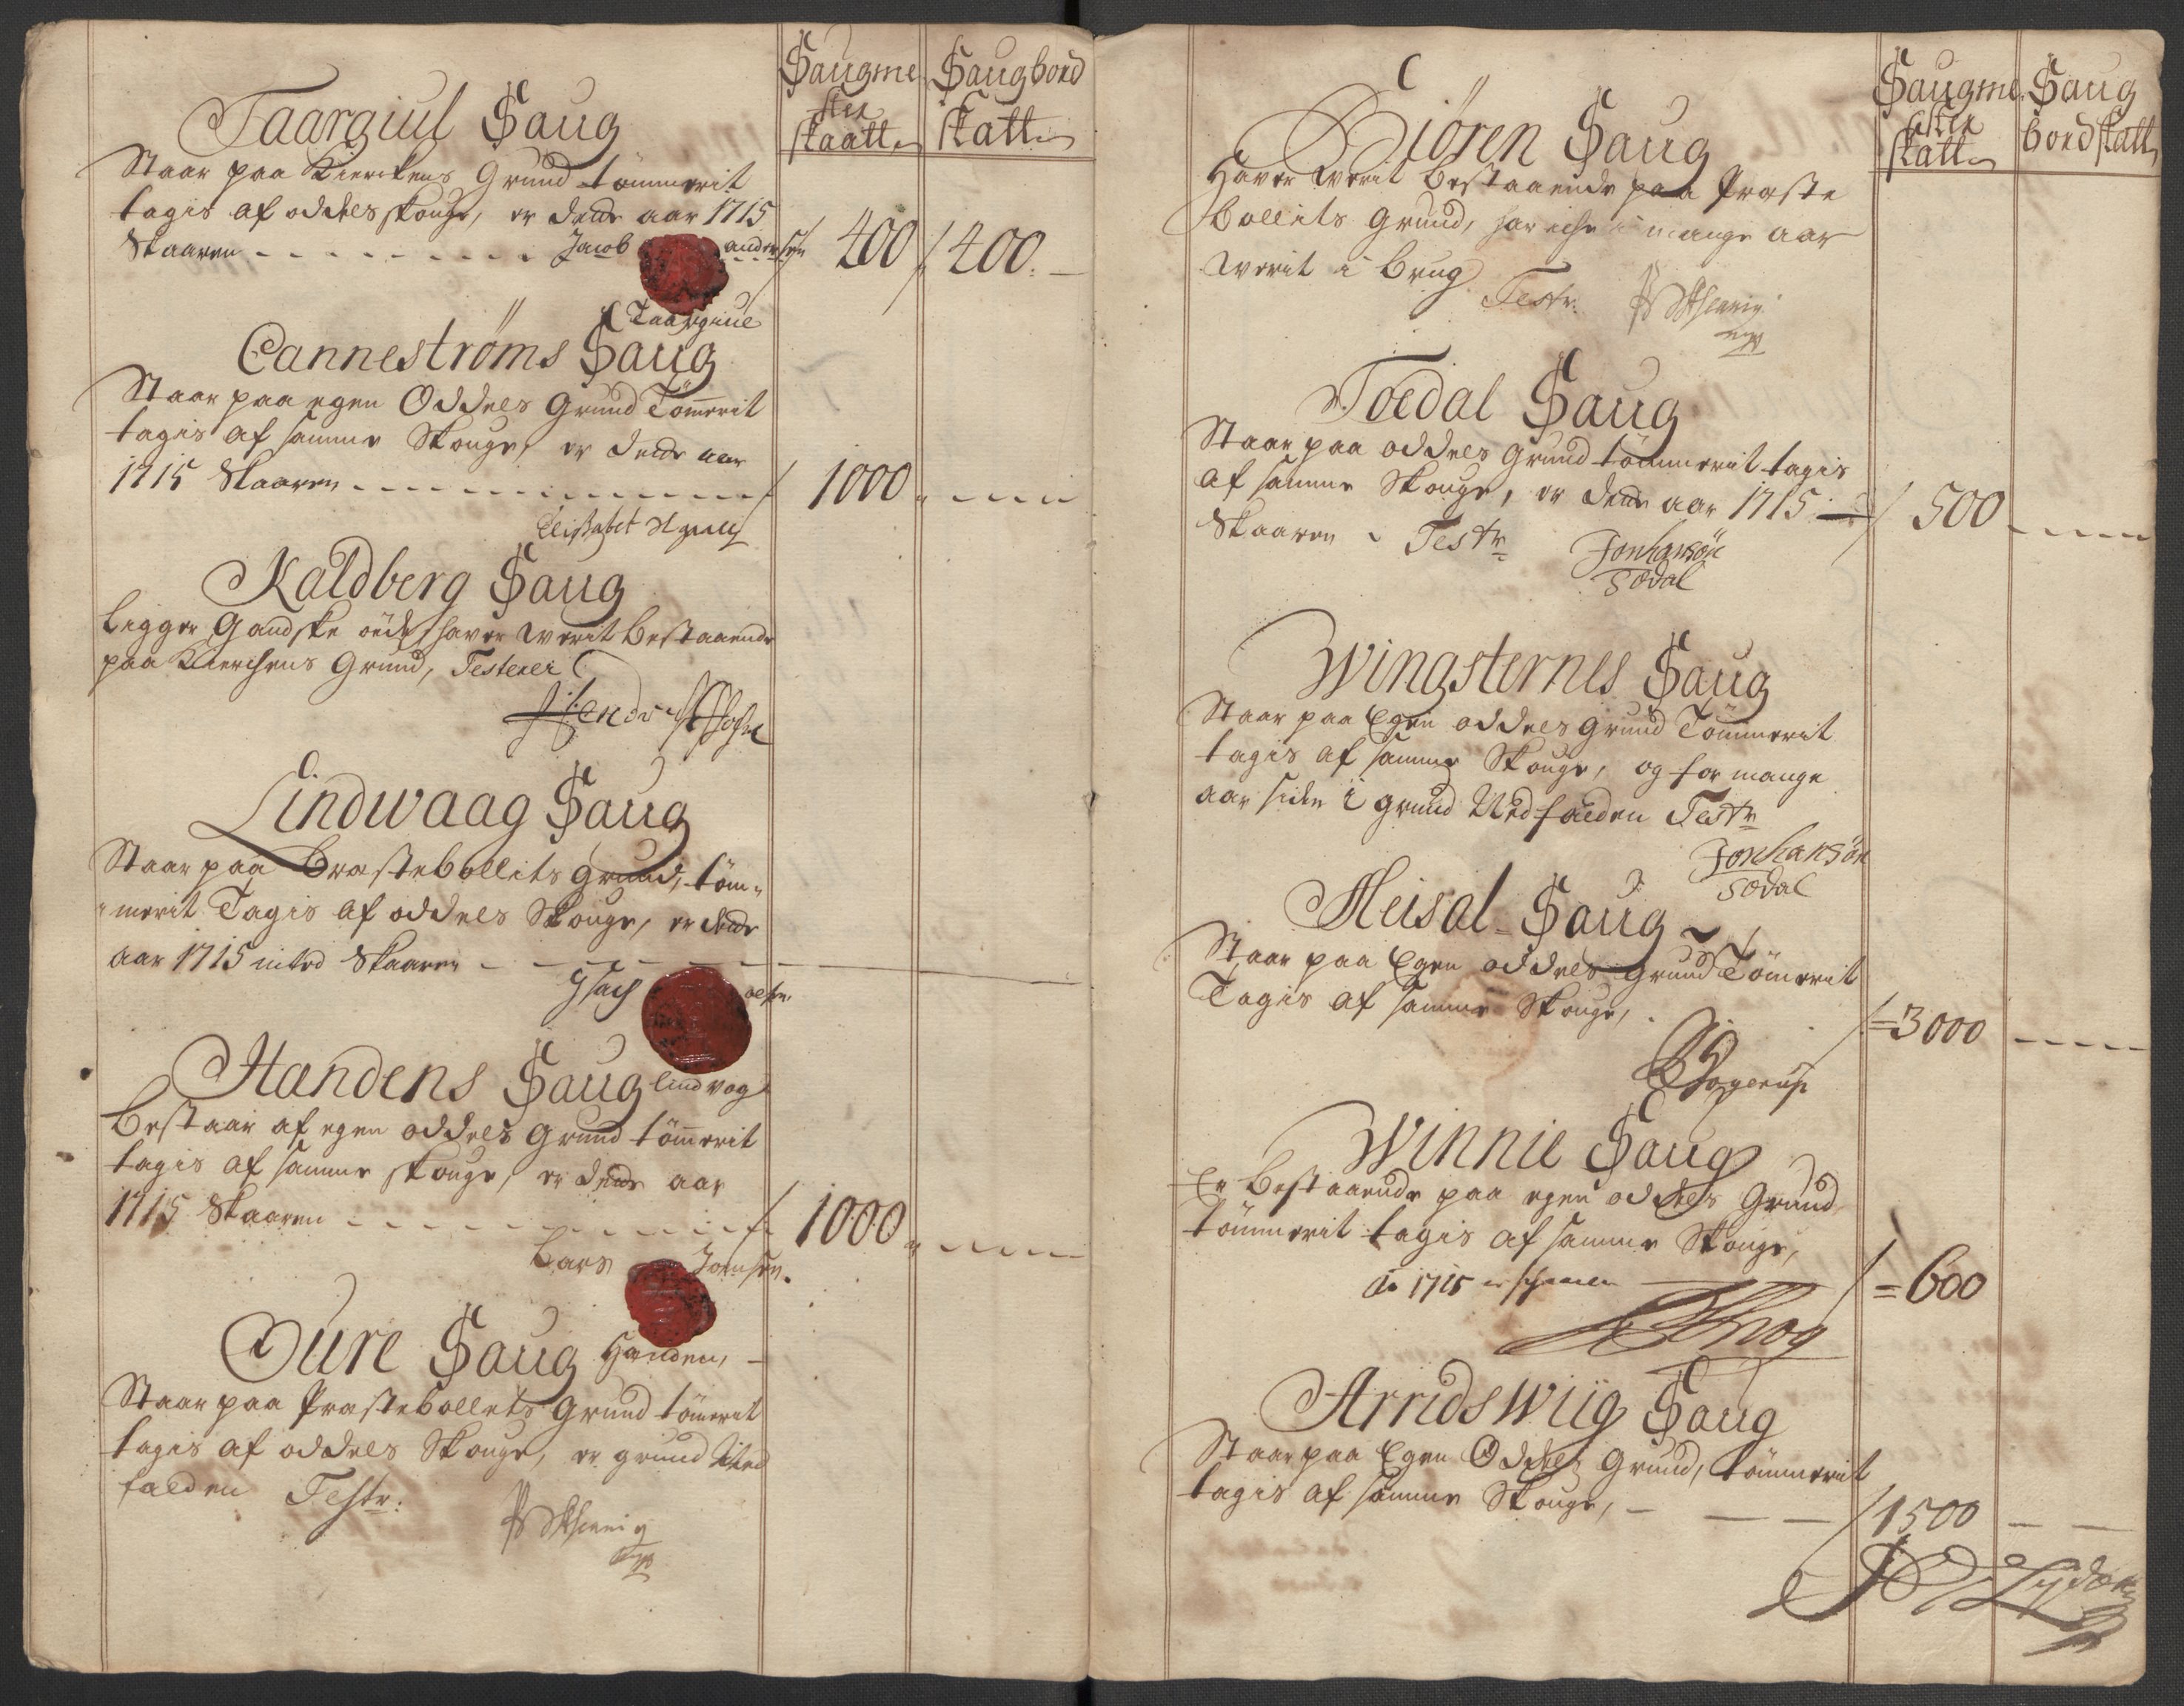 Saugme
ster
skaatt
Saugbord
skatt
Taargiul Saug
Staar paa Kierckens Grund tömmerit
tagis af oddels skouge, er dende aar 1715
Skaaren - - - - - - - - Jacob andersen 400 400
Taargiul
Cannestrøms Saug
Staar paa egen Oddels Grund Tömerit
tagis af samme Skouge, er dende aar
1715 Skaaren - - - - - - - - 1000
Elissabet
Kaldberg Saug
Ligger Gandske øede, haver werit bestaaende
paa Kierckens Grund, Testerer
Lindwaag Saug
Staar paa Præstebollits Grund, töm-
merit Tagis af oddels Skouge, er dende
aar 1715 inted Skaaren - - - - - -
Isach
lindvag
Handens Saug
Bestaar af egen oddels Grund tömerit
tagis af samme skouge, er dende aar
1715 Skaaren - - - - - - - - 1000
Lars Joensen
Handen
Oure Saug
Staar paa Præstebollets Grund tömerit
tagis af oddels Skouge, er grund Ned
falden Testr:
Saugme
ster
skatt
Saug
bord skatt
Biøren Saug
Haver Werit bestaaende paa Præste
bollits Grund, har iche i mange aar
werit i brug Testr.
Toedal Saug
Staar paa oddels Grund tömmerit tagis
af samme Skouge, er dende aar 1715
Skaaren - Testr 500
Jonhansøn
Södal
Wingsternes Saug
Staar paa Egen oddels Grund Tömmerit
tagis af samme Skouge, og for mange
aar siden i grund Nedfalden Testr
Jonhansøn
södal
Heisal Saug
Staar paa Egen oddels Grund Tömerit
Tagis af samme Skouge,
3000
Winnie Saug
Er bestaaende paa egen oddels Grund
tömmerit tagis af samme Skouge,
Ao 1715 er schaaren 600
Arridswiig Saug
Staar paa Egen Oddels Grund, tömmerit
tagis af samme Skouge, - - - 1500